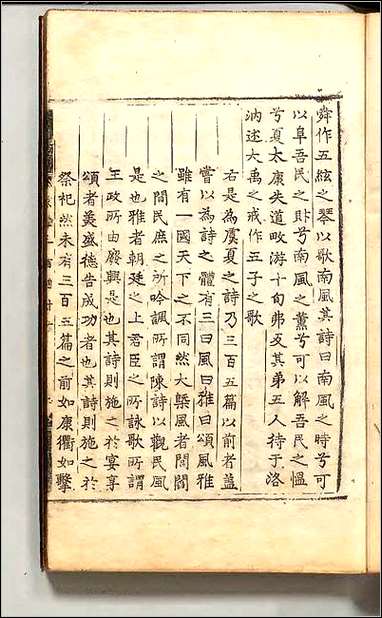 舜作五絃之琴以歌南風其詩曰南風之時兮可
以阜吾民之財兮南風之薰兮可以解吾民之慍
兮夏太康失道畋游十旬弗反其弟五人待于洛
汭述大禹之戒作五子之歌
右是為虞夏之詩乃三百五篇以前者蓋
嘗以為詩之體有三曰風曰雅曰頌風雅
雖有一國天下之不同然大槩風者閭閻
之間民庶之所吟諷所謂陳詩以觀民風
是也雅者朝廷之上君臣之所詠歌所謂
王政所由廢興是也其詩則施之於宴享
頌者美盛德告成功者也其詩則施之於
祭祀然未有三百五篇之前如康衢如擊